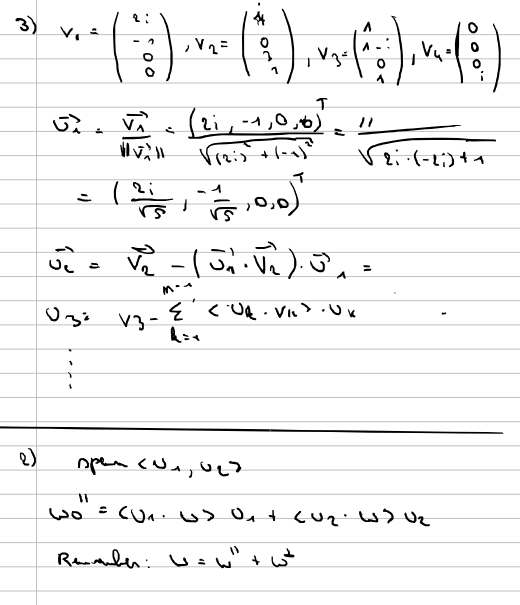 3) v₁ = (2i, -1, 0, 0), v₂ = (i, 0, 1), v₃ = (1, 1-i, 0, 1), v₄ = (0, 0, 0, i)
u₁ = v₁ / ||v₁|| = (2i, -1, 0, 0)ᵀ / √((2i)² + (-1)²) = " / √(2i·(-2i)+1
= (2i/√5, -1/√5, 0, 0)ᵀ
u₂ = v₂ - (u₁ · v₂) · u₁ =
u₃ = v₃ - Σ_{k=1}^{n-1} <u_k · v_k> · u_k
⋮
2) span <u₁, u₂>
w₀'' = <u₁ · w> u₁ + <u₂ · w> u₂
Remember: w = w'' + w⊥